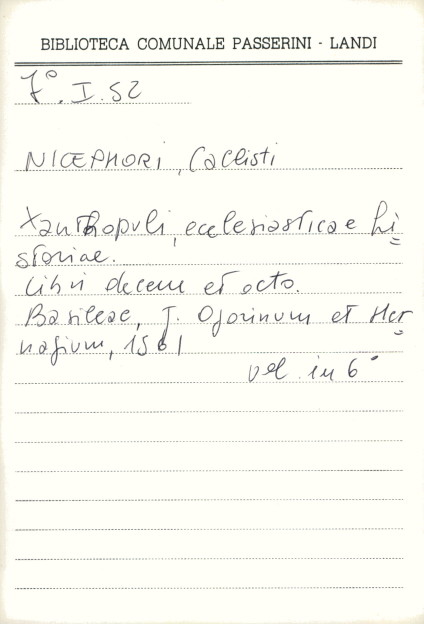 BIBLIOTECA COMUNALE PASSERINI - LANDI
7°. I. 52
NICEPHORI, Callisti
Xanthopuli, ecclesiasticae hi=
storiae.
Libri decem et octo.
Basileae, J. Oporinum et Her=
nagium, 1561
vol. in 6°